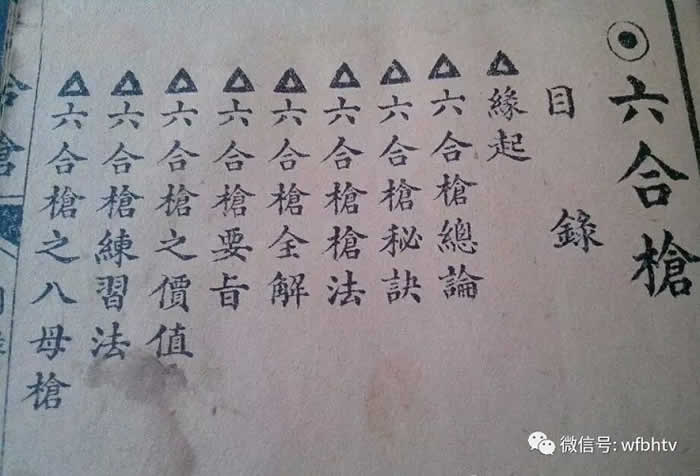 ⊙六合槍
目錄
△緣起
△六合槍總論
△六合槍秘訣
△六合槍槍法
△六合槍全解
△六合槍要旨
△六合槍之價值
△六合槍練習法
△六合槍之八母槍
合槍
微信号: wfbhtv